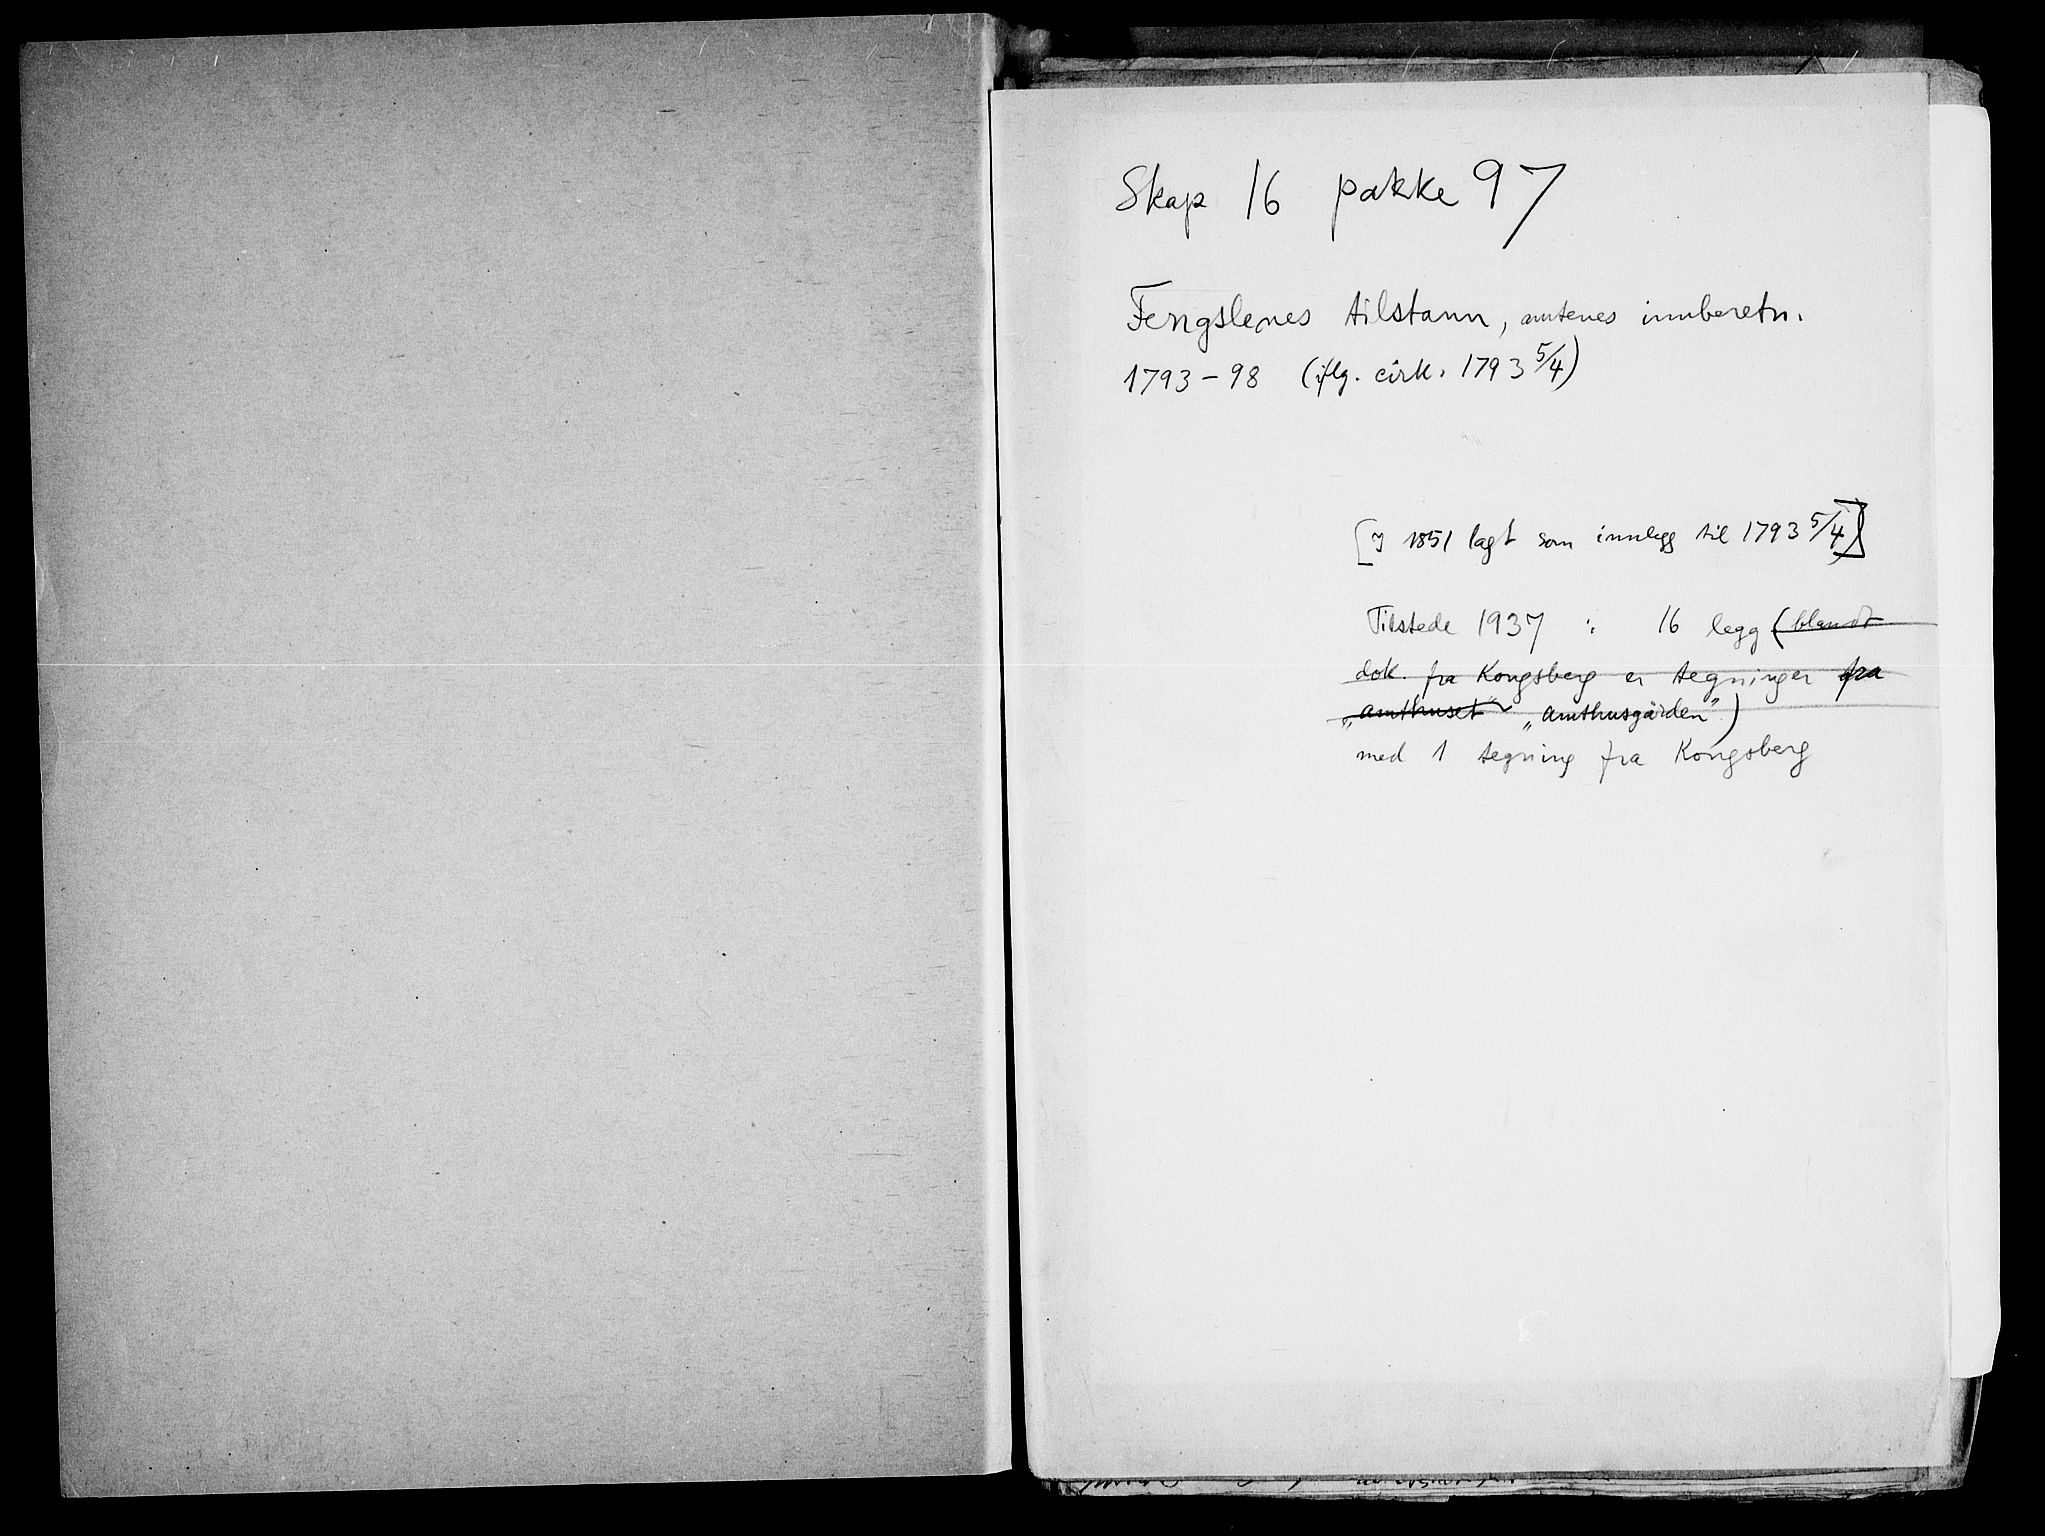 Skap 16 pakke 97
Fengslenes tilstann, amtenes innberetn.
1793-98 (iflg. cirk. 1793 5/4)
[I 1851 lagt som innlegg til 1793 5/4)]
Tilstede 1937 : 16 legg (blandt
dok. fra Kongsberg er tegninger fra
„amthuset" „amthusgården")
med 1 tegning fra Kongsberg